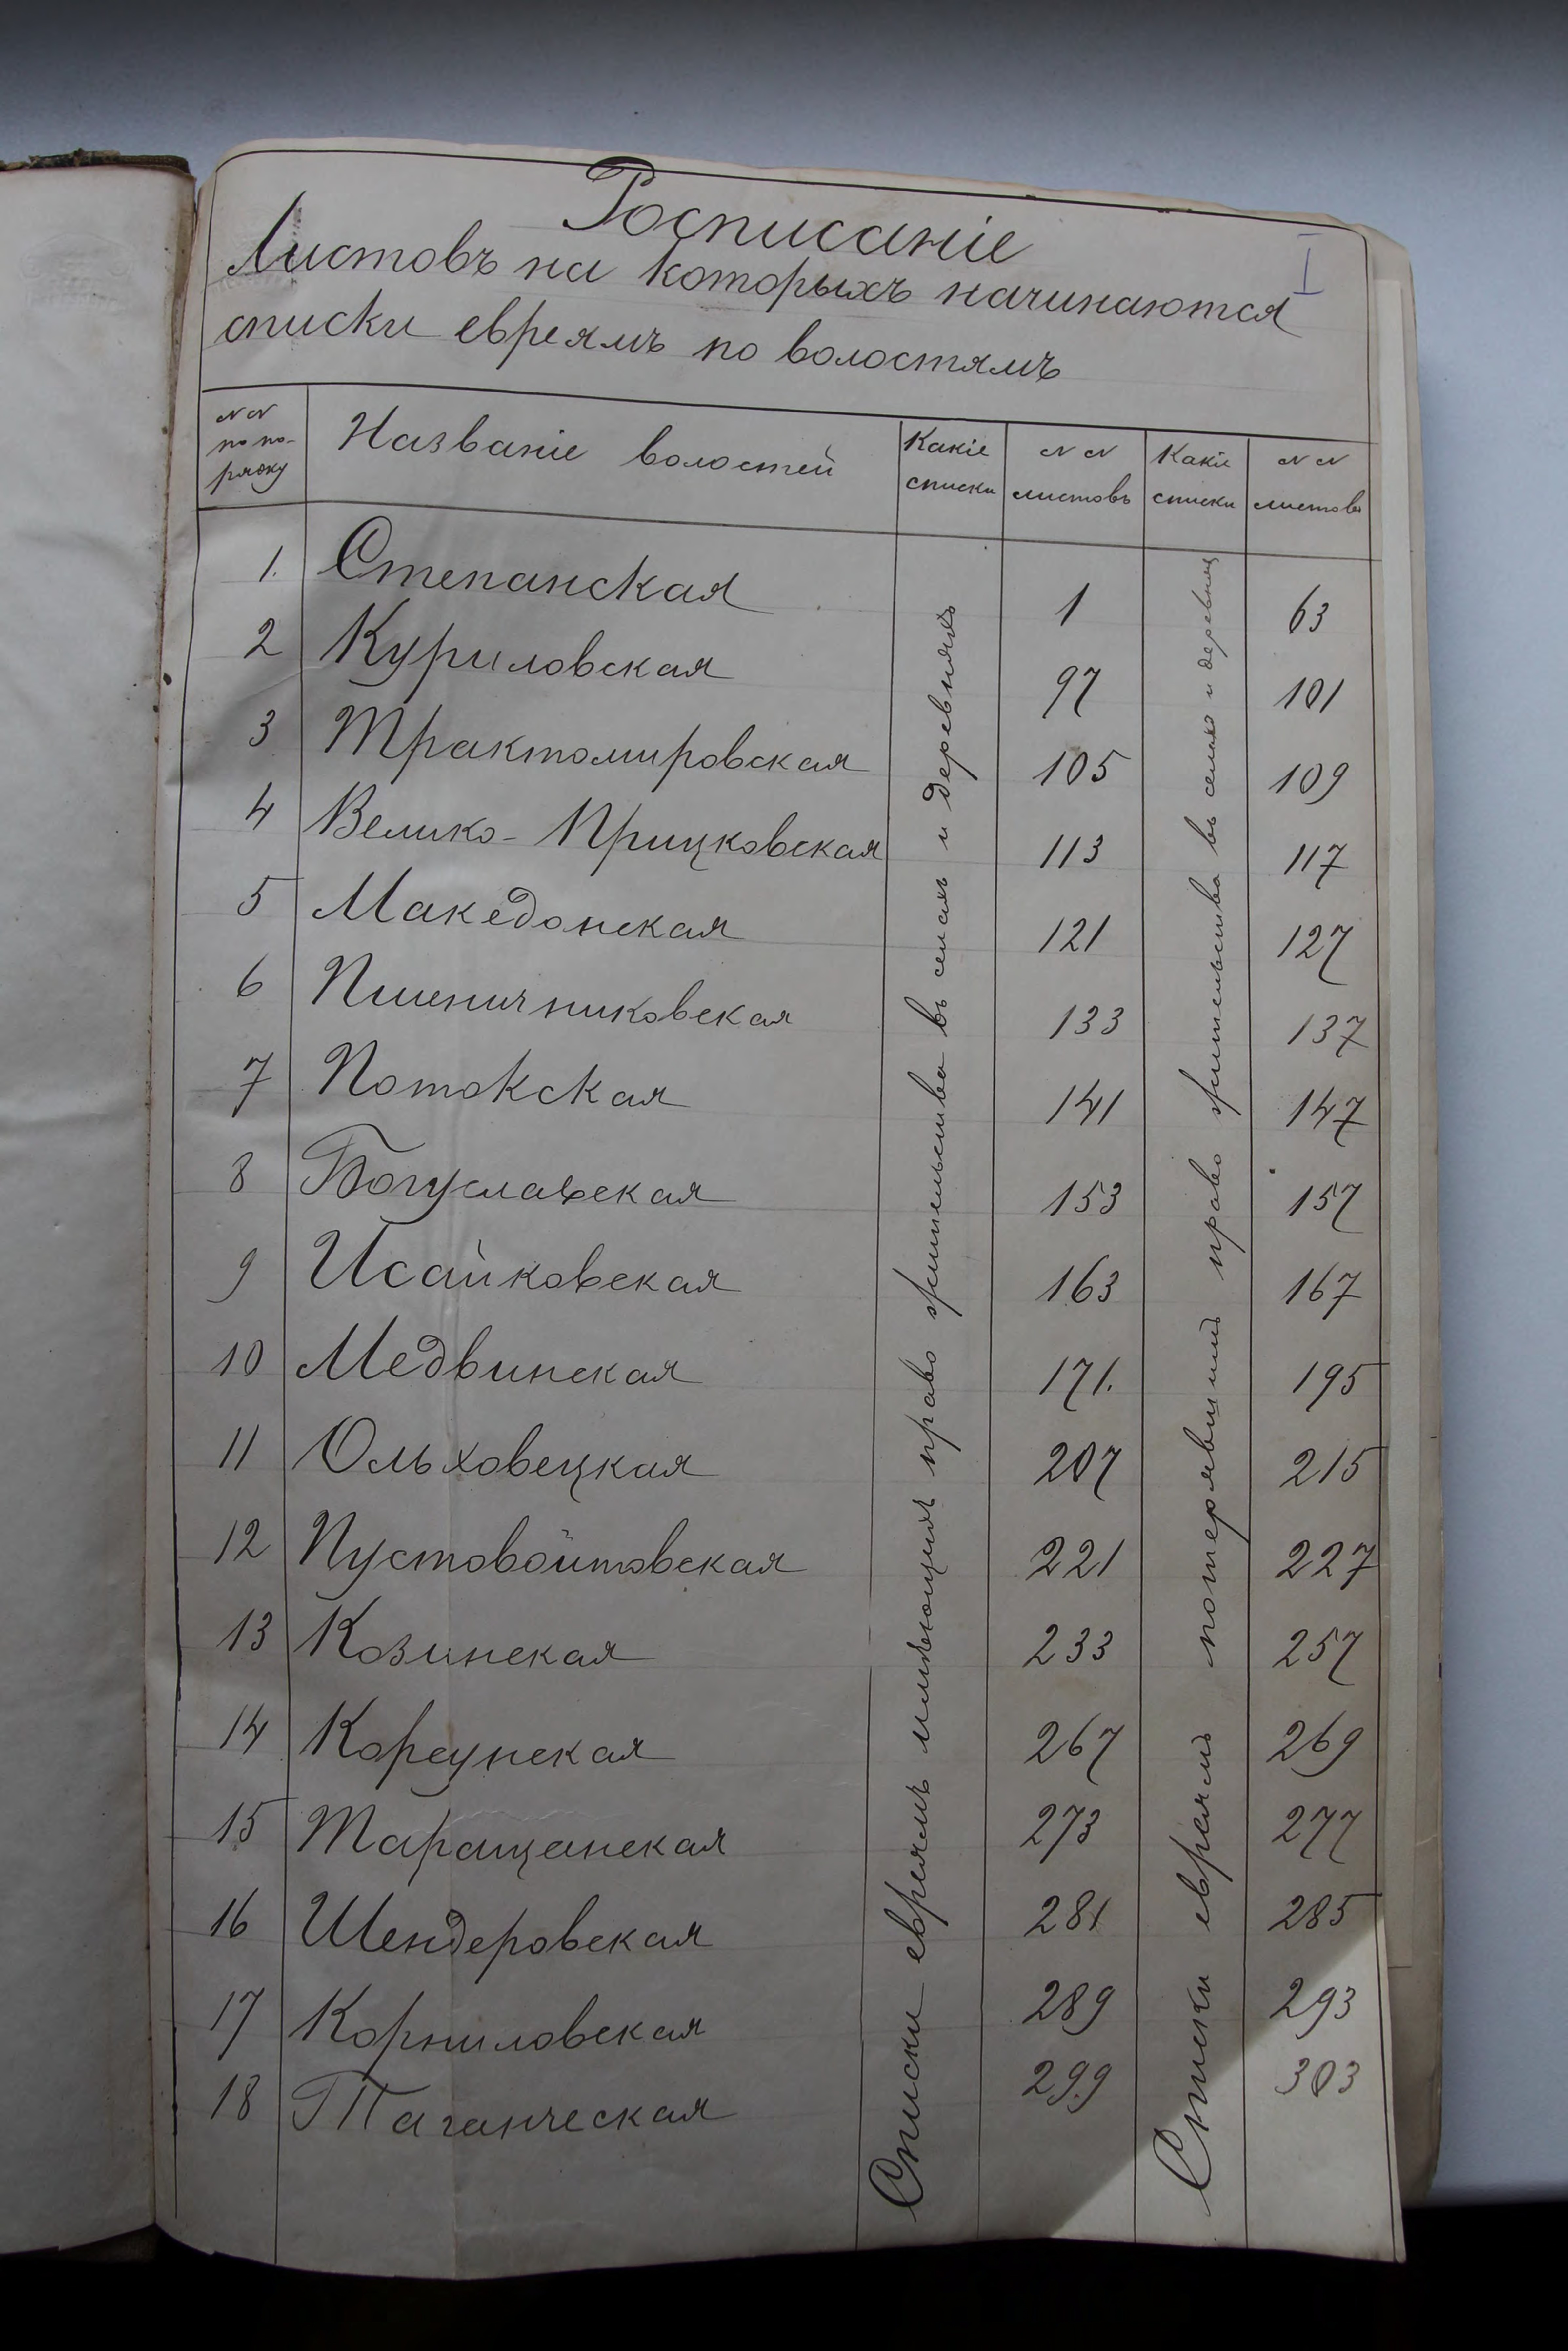 Росписаніе
I
Листовъ на которыхъ начинаются
списки евреямъ по волостямъ
№№ по по- рядку Названіе волостей Какіе списки №№ листовъ Какіе списки №№ листовъ
1. Степанская 1 63
2 Куриловская 97 101
3 Трактомировская 105 109
4 Велико-Прицковская 113 117
5 Македонская 121 127
6 Пшеничниковская 133 137
7 Потокская 141 147
8 Богуславская 153 157
9 Исайковская 163 167
10 Медвинская 171. 195
11 Ольховецкая 207 215
12 Пустовойтовская 221 227
13 Козинская 233 257
14 Корсунская 267 269
15 Таращанская 273 277
16 Шендеровская 281 285
17 Корниловская 289 293
18 Таганческая 299 303
Списки евреямъ имѣющимъ право жительства въ селахъ и деревняхъ
Списки евреямъ потерявшимъ право жительства въ селахъ и деревняхъ